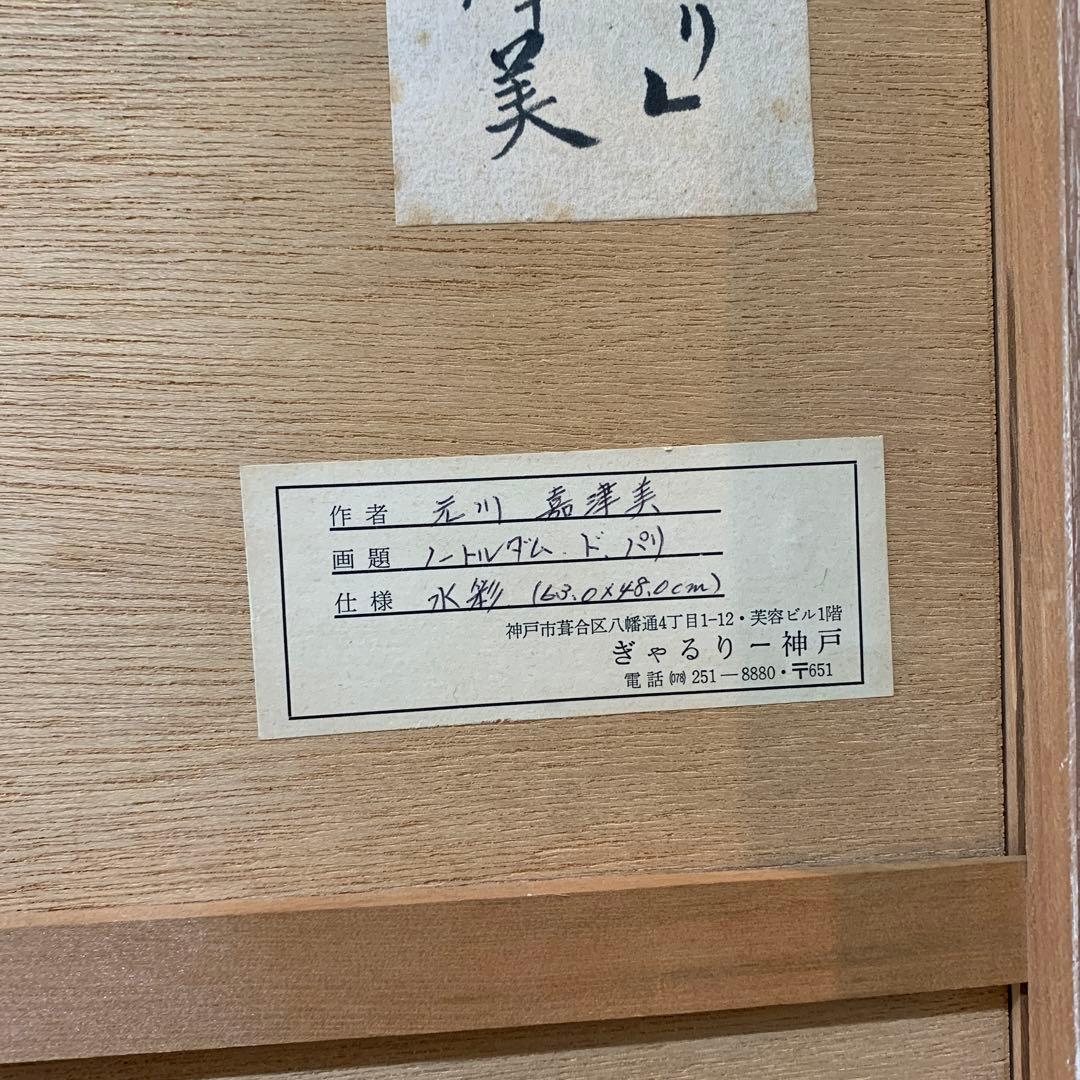 リ」
津美
作者 元川 嘉津美
画題 ノートルダム.ド.パリ
仕様 水彩.(63.0×48.0cm)
神戸市葺合区八幡通4丁目1-12・芙蓉ビル1階
ぎゃるりー神戸
電話(078)251—8880・〒651